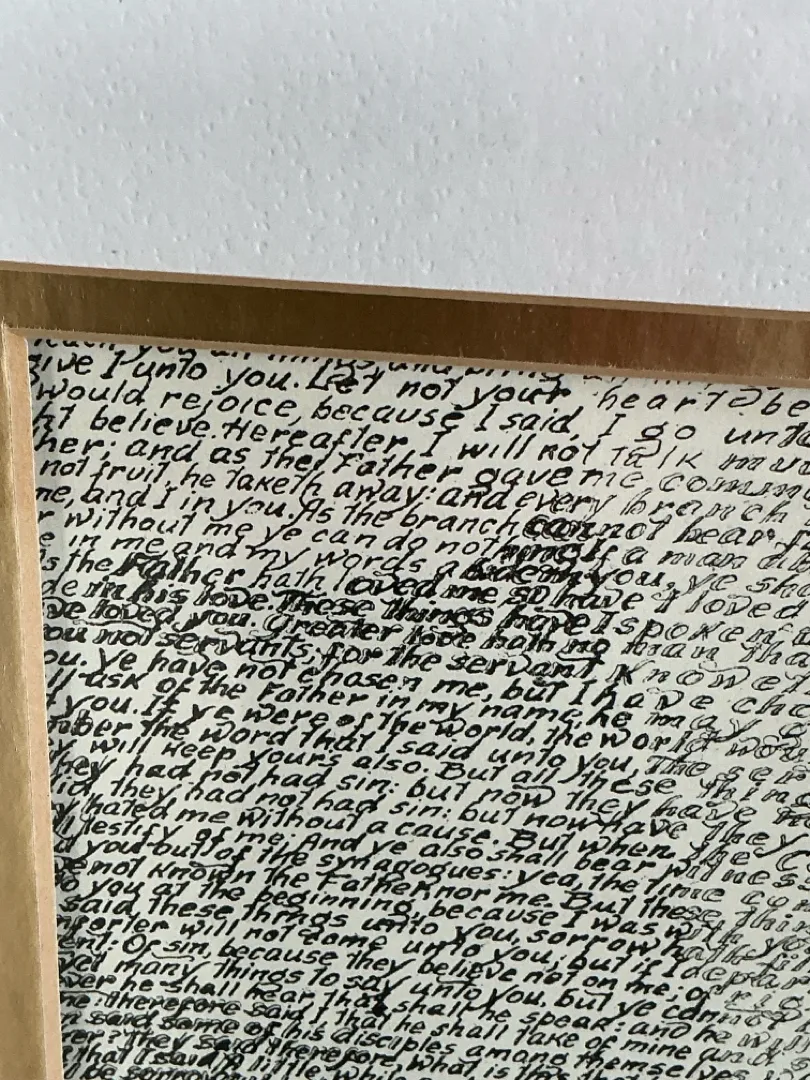 give I unto you. Let not your heart be
would rejoice, because I said, I go unto
believe. Hereafter I will not talk
her; and as the Father gave me
not fruit, he taketh away: and every branch
me, and I in you. As the branch cannot bear
without me ye can do nothing. If a man
in me and my words abide in you, ye
s the Father hath loved me, so have I loved
in his love. These things have I spoken
ve loved you. Greater love hath no man
ou not servants; for the servant knoweth
ou. Ye have not chosen me, but I have
ask of the Father in my name, he may
you. If ye were of the world, the world
ber the word that I said unto you, The
will keep yours also. But all these
hey had not had sin: but now they have
they had not had sin: but now have they
hated me without a cause. But when the
testify of me: And ye also shall bear witness
you out of the synagogues: yea, the time
not known the Father, nor me. But these
you at the beginning, because I was with
said these things unto you, sorrow hath
will not come unto you; but if I depart
Of sin, because they believe not on me; Of
many things to say unto you, but ye cannot
ver he shall hear, that shall he speak: and he will
me: therefore said I, that he shall take of mine and
said some of his disciples among themselves
They said therefore, What is this
that I said, A little while